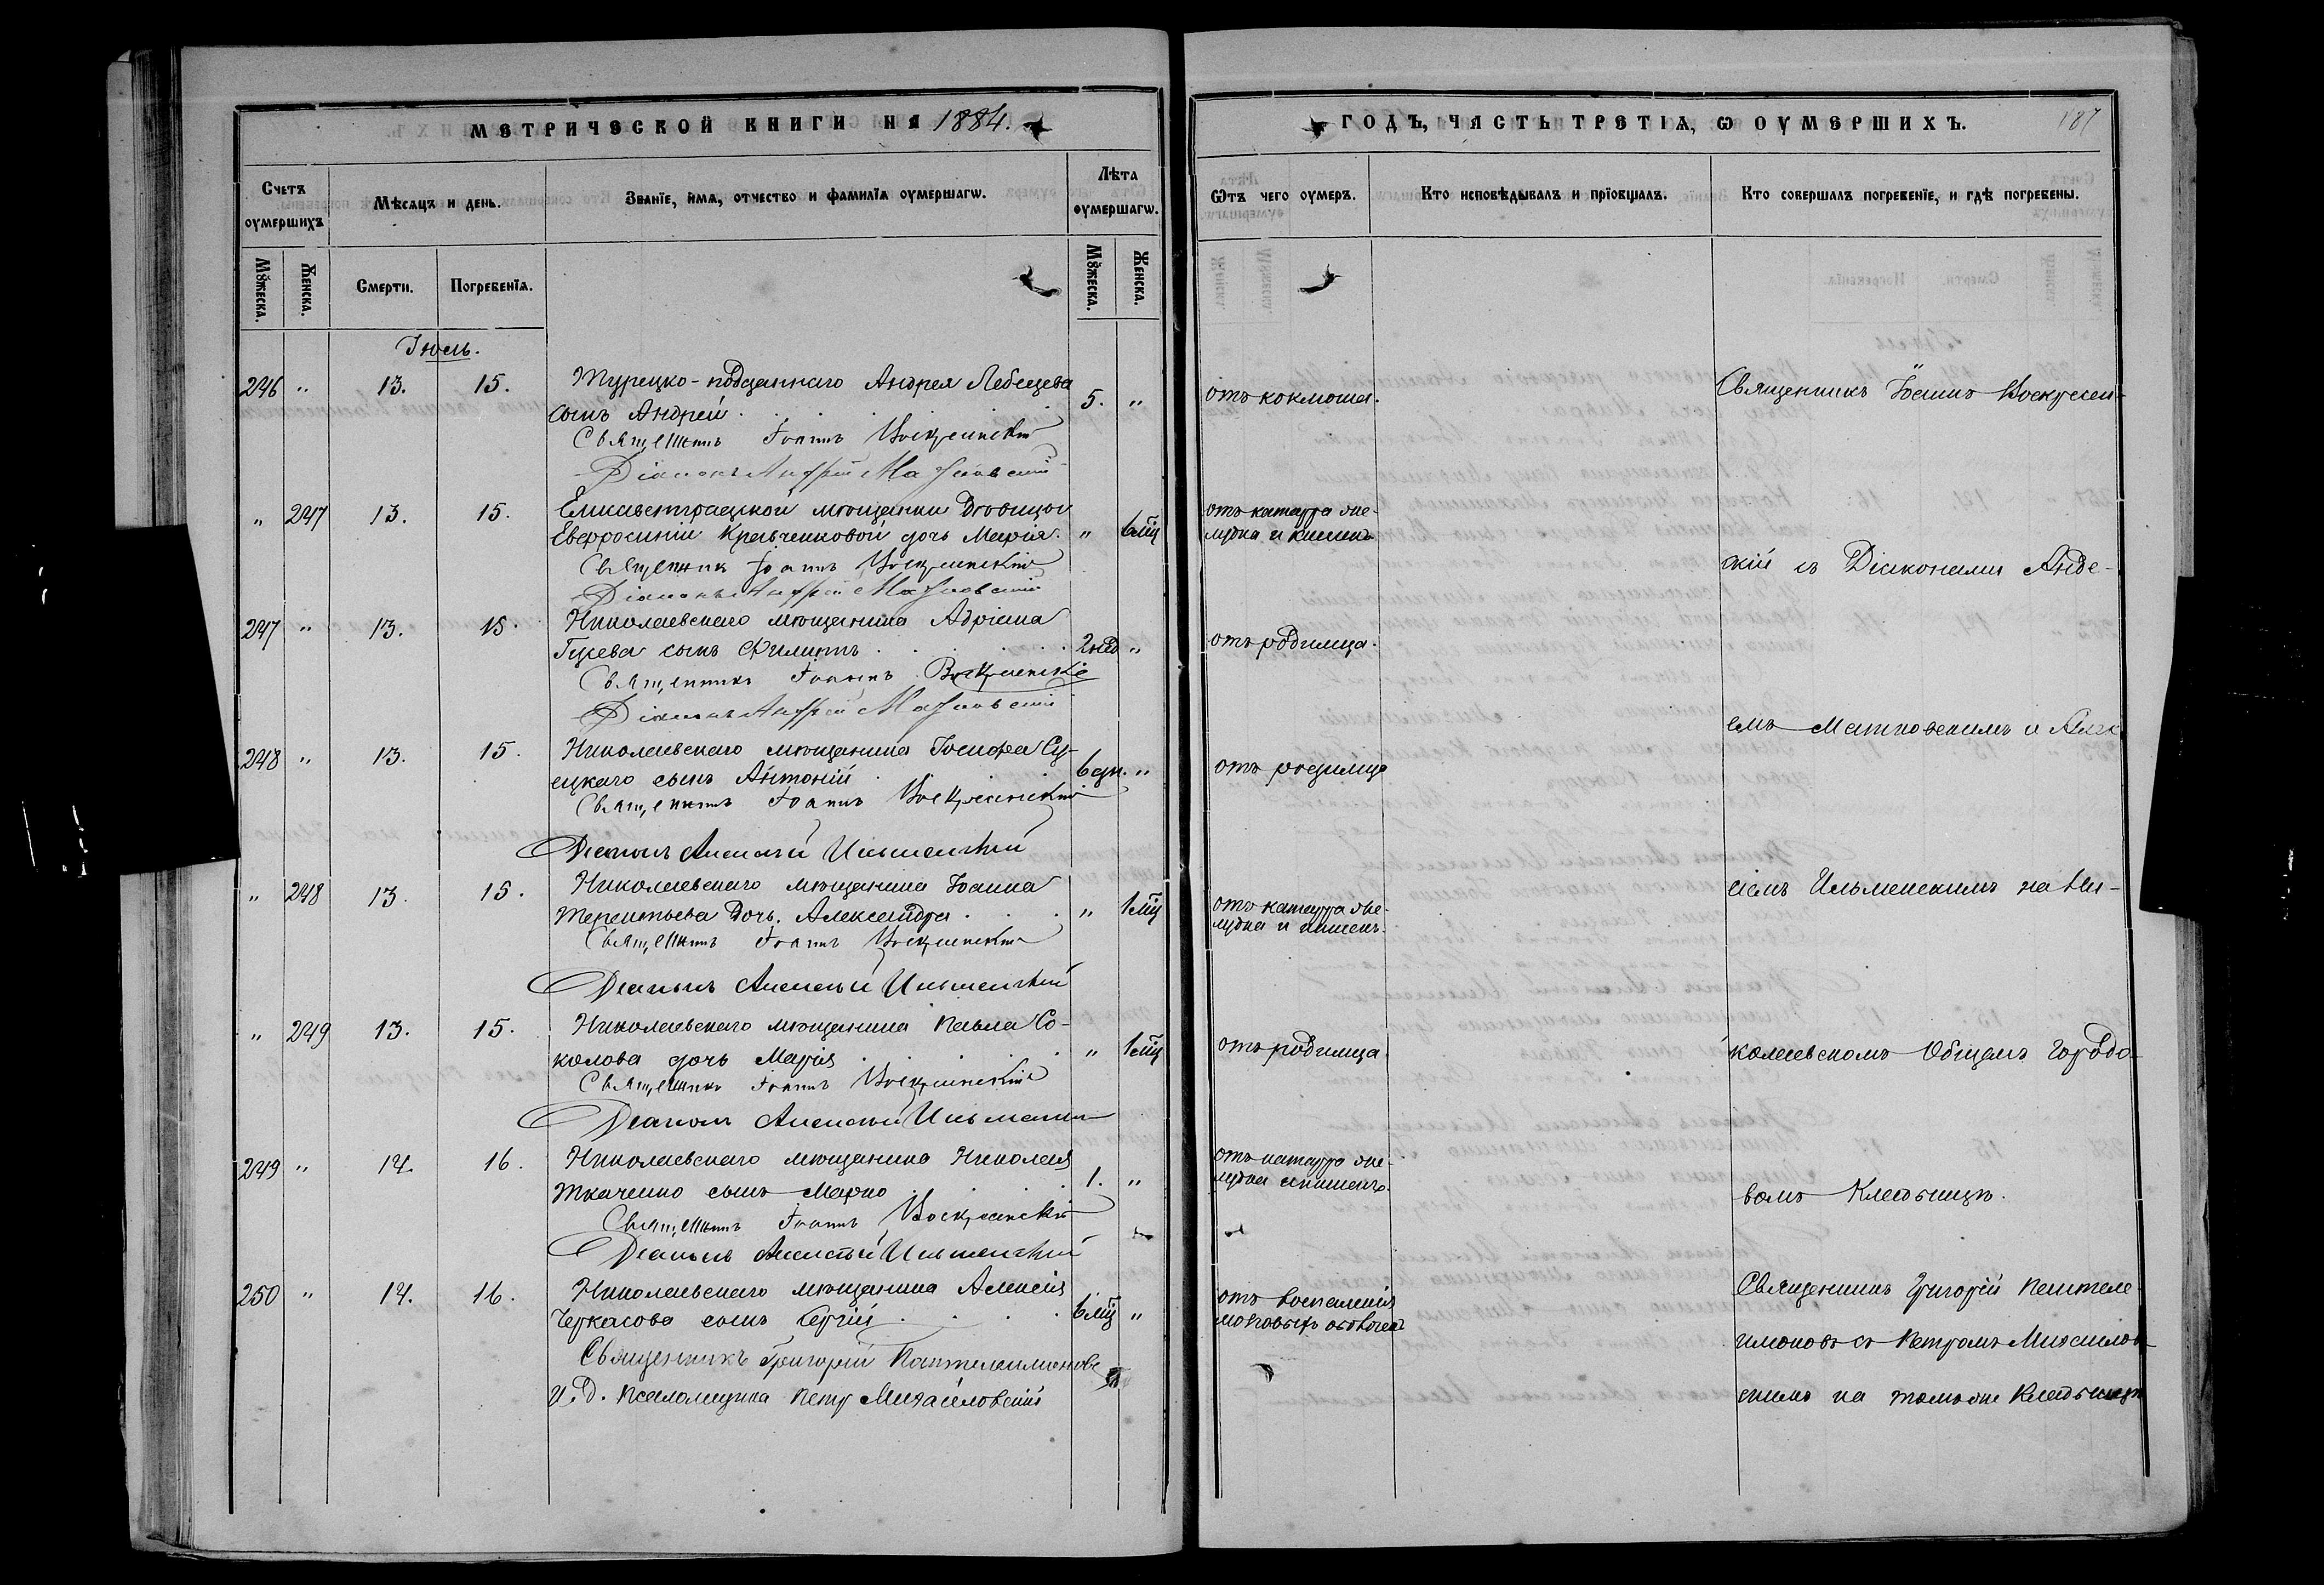 МЕТРИЧЕСКОЙ КНИГИ НА 1884.
Счетъ оумершихъ
Мѣсяцъ и день.
Званїе, имя, отчество и фамилїя оумершагѡ.
Лѣта оумершагѡ.
Мꙋжеска.
Женска.
Смерти.
Погребенїя.
Мꙋжеска.
Женска.
Іюль.
246 " 13. 15. Турецко-подданнаго Андрея Лебедева 5. "
сынъ Андрей.
Священникъ Іоаннъ Воскресенскій
Діаконъ Андрей Матковскій
" 247 13. 15. Елисаветградской мѣщанки Вдовицы
Евфросиніи Кравченковой дочь Марія. " 6 мцъ
Священник Іоаннъ Воскресенскій
Діаконъ Андрей Матковскій
247 " 13. 15. Николаевскаго мѣщанина Адріана
Гусева сынъ Филиппъ 2 нед "
Священникъ Іоаннъ Воскресенскій
Діаконъ Андрей Матковскій
248 " 13. 15. Николаевскаго мѣщанина Іосифа Су-
ецкаго сынъ Антоній 6 дн. "
Священникъ Іоаннъ Воскресенскій
Діаконъ Алексѣй Ильменскій
" 248 13. 15. Николаевскаго мѣщанина Іоанна
Терентьева дочь Александра " 1 мцъ
Священникъ Іоаннъ Воскресенскій
Діаконъ Алексѣй Ильменскій
" 249 13. 15. Николаевскаго мѣщанина Павла Со-
колова дочь Марія " 1 мцъ
Священникъ Іоаннъ Воскресенскій
Діаконъ Алексѣй Ильменскій
249 " 14. 16. Николаевскаго мѣщанина Николая
Ткаченко сынъ Марко 1. "
Священникъ Іоаннъ Воскресенскій
Діаконъ Алексѣй Ильменскій
250 " 14. 16. Николаевскаго мѣщанина Алексѣя
Черкасова сынъ Сергій 6 мцъ "
Священникъ Григорій Пантелеимоновъ
И. д. псаломщика Петр Михайловскій
ГОДЪ, ЧАСТЬ ТРЕТІЯ, Ѡ ОУМЕРШИХЪ.
187
Ѿтъ чего оумеръ.
Кто исповѣдывалъ и прїобщалъ.
Кто совершалъ погребенїе, и гдѣ погребены.
отъ коклюша.
отъ катарра же-
лудка и кишекъ
отъ родимца.
отъ родимца
отъ катарра же-
лудка и кишекъ.
отъ родимца.
отъ катарра же-
лудка и кишекъ.
отъ воспаленія
мозговыхъ оболочекъ
Священникъ Іоаннъ Воскресен-
скій съ Діаконами Андре-
емъ Матковскимъ и Алек
сѣемъ Ильменскимъ на Ни-
колаевскомъ Общемъ Городо-
вомъ Кладбищѣ.
Священникъ Григорій Пантеле-
имоновъ съ Петромъ Михайлов-
скимъ на томъ же Кладбищѣ